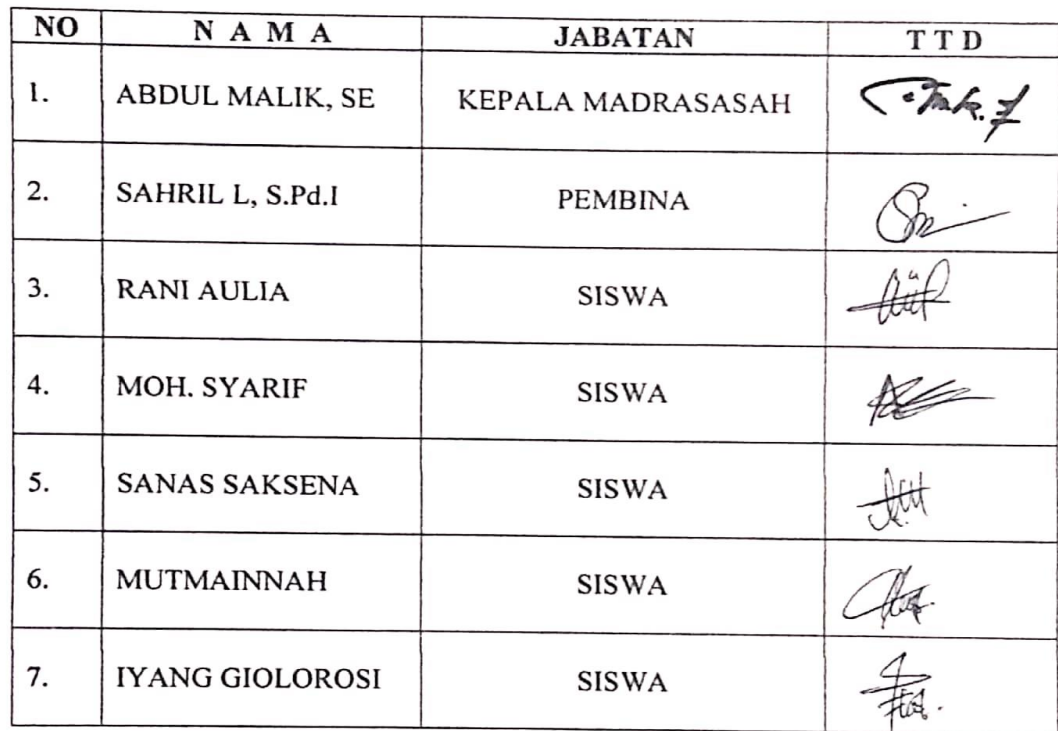 NO N A M A JABATAN T T D
1. ABDUL MALIK, SE KEPALA MADRASASAH
2. SAHRIL L, S.Pd.I PEMBINA
3. RANI AULIA SISWA
4. MOH. SYARIF SISWA
5. SANAS SAKSENA SISWA
6. MUTMAINNAH SISWA
7. IYANG GIOLOROSI SISWA